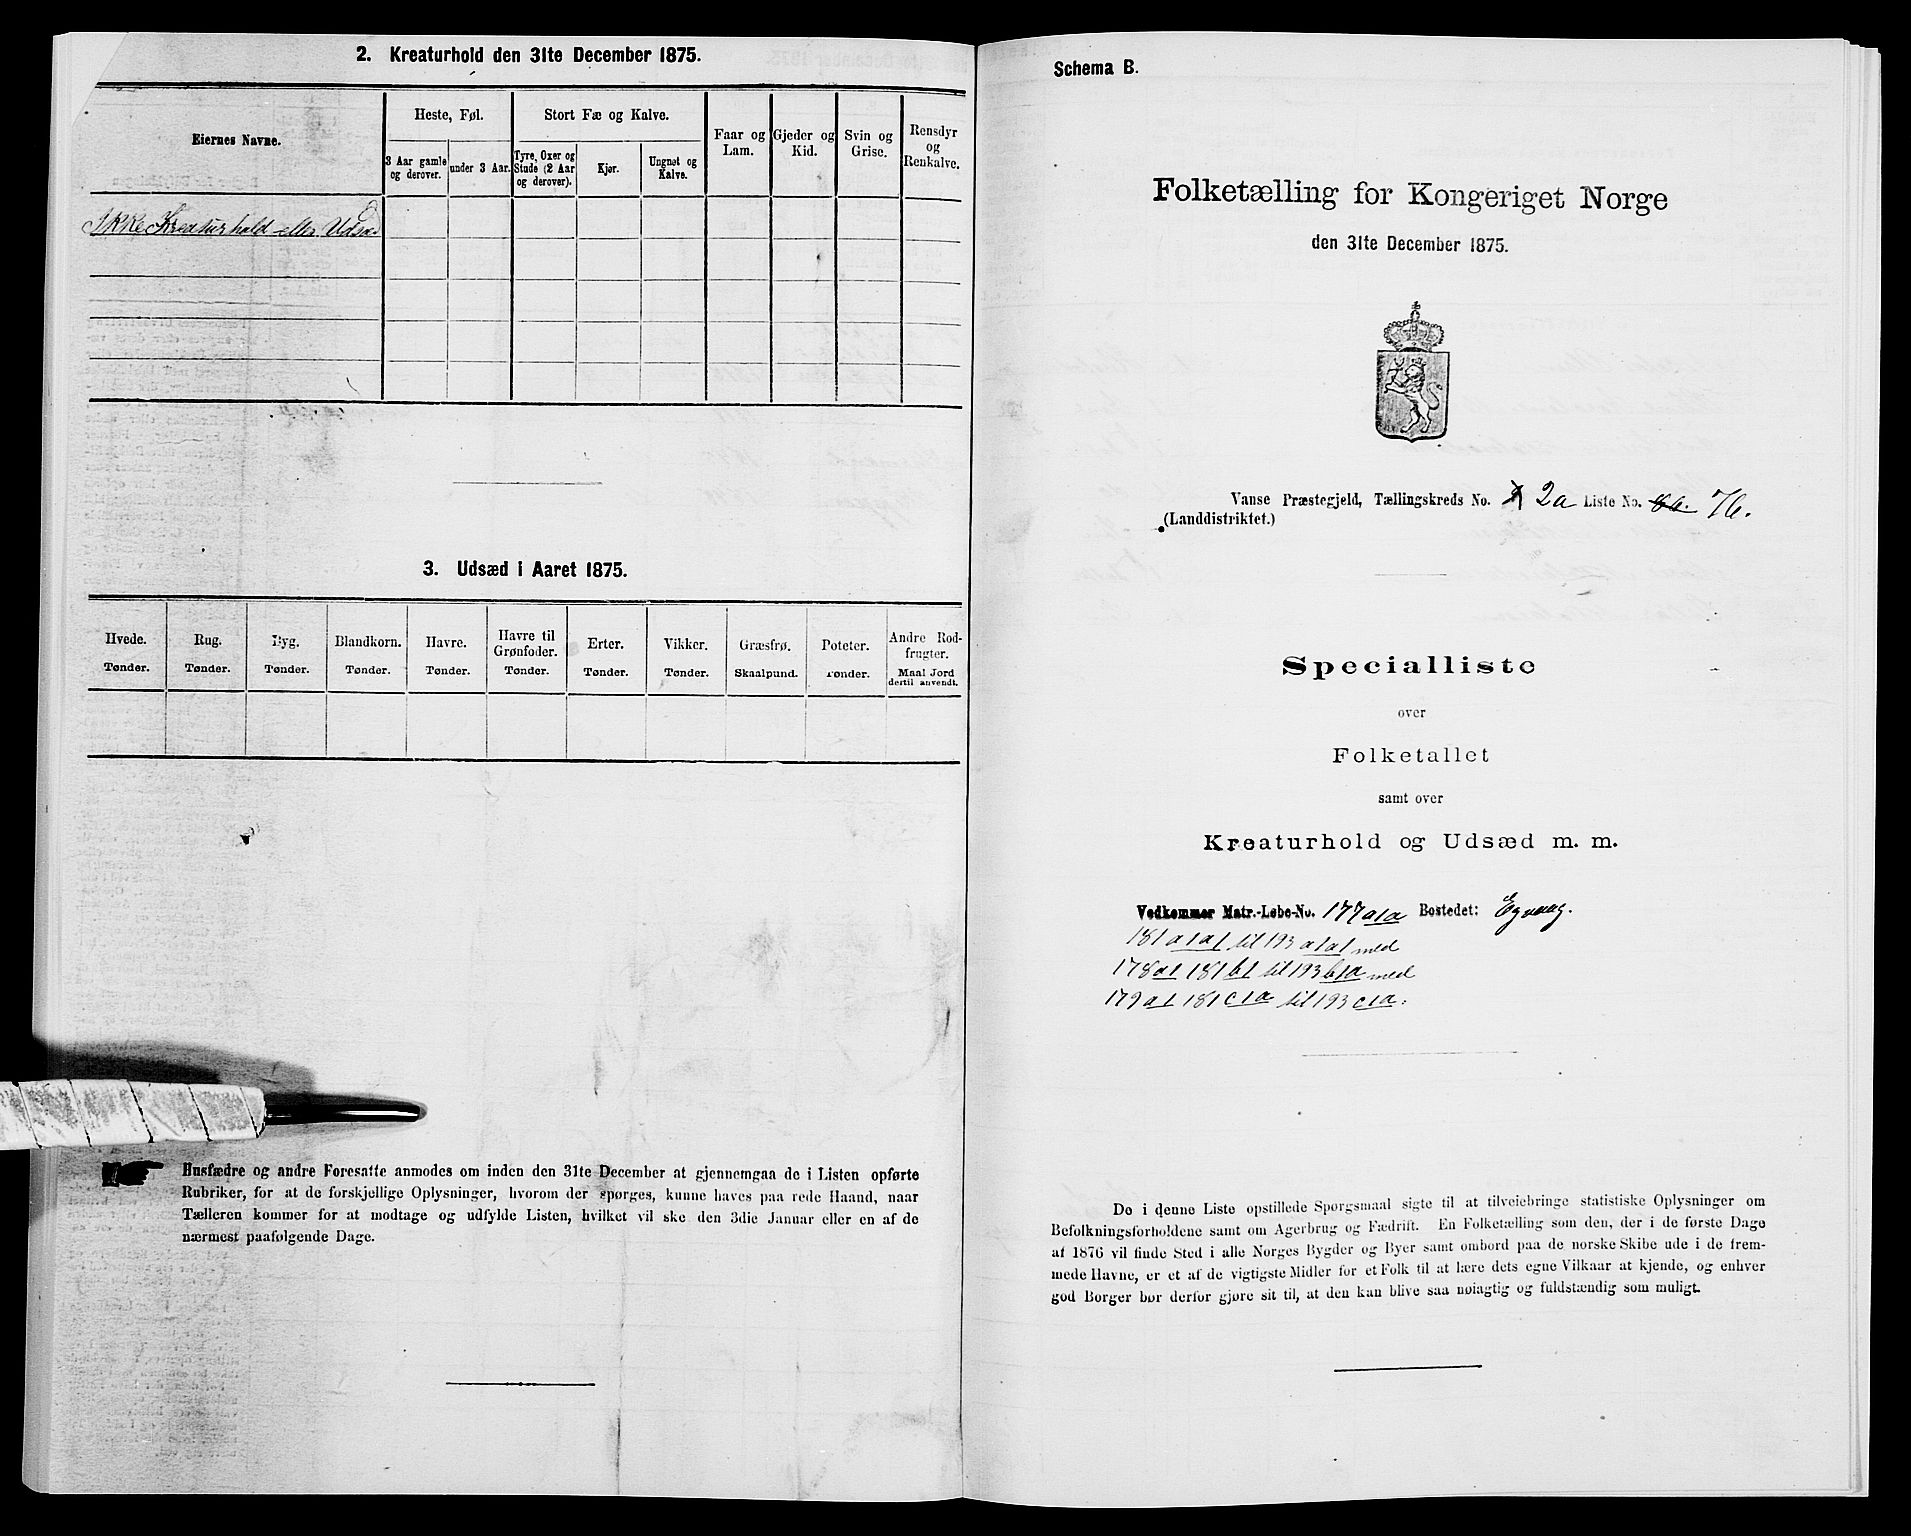 2. Kreaturhold den 31te December 1875.
Eiernes Navne.
Heste, Føl.
3 Aar gamle og derover.
under 3 Aar.
Stort Fæ og Kalve.
Tyre, Oxer og Stude (2 Aar og derover).
Kjør.
Ungnøt og Kalve.
Faar og Lam.
Gjeder og Kid.
Svin og Grise.
Rensdyr og Renkalve.
Ikke Kreaturhold eller Udsæd
3. Udsæd i Aaret 1875.
Hvede. Tønder.
Rug. Tønder.
Byg. Tønder.
Blandkorn. Tønder.
Havre. Tønder.
Havre til Grønfoder. Tønder.
Erter. Tønder.
Vikker. Tønder.
Græsfrø. Skaalpund.
Poteter. Tønder.
Andre Rodfrugter. Maal Jord dertil anvendt.
Husfædre og andre Foresatte anmodes om inden den 31te December at gjennemgaa de i Listen opførte
Rubriker, for at de forskjellige Oplysninger, hvorom der spørges, kunne haves paa rede Haand, naar
Tælleren kommer for at modtage og udfylde Listen, hvilket vil ske den 3die Januar eller en af de
nærmest paafølgende Dage.
Schema B.
Folketælling for Kongeriget Norge
den 31te December 1875.
Vanse Præstegjeld, Tællingskreds No. 2a Liste No. 76.
(Landdistriktet.)
Specialliste
over
Folketallet
samt over
Kreaturhold og Udsæd m. m.
Vedkommer Matr.-Løbe-No. 177a1a Bostedet: Egvaag.
181 a1a1 til 193 a1a1 med
178a1 181 b1 til 193 b1a med
179a1 181 c1a til 193 c1a.
De i denne Liste opstillede Spørgsmaal sigte til at tilveiebringe statistiske Oplysninger om
Befolkningsforholdene samt om Agerbrug og Fædrift. En Folketælling som den, der i de første Dage
af 1876 vil finde Sted i alle Norges Bygder og Byer samt ombord paa de norske Skibe ude i de frem-
mede Havne, er et af de vigtigste Midler for et Folk til at lære dets egne Vilkaar at kjende, og enhver
god Borger bør derfor gjøre sit til, at den kan blive saa nøiagtig og fuldstændig som muligt.